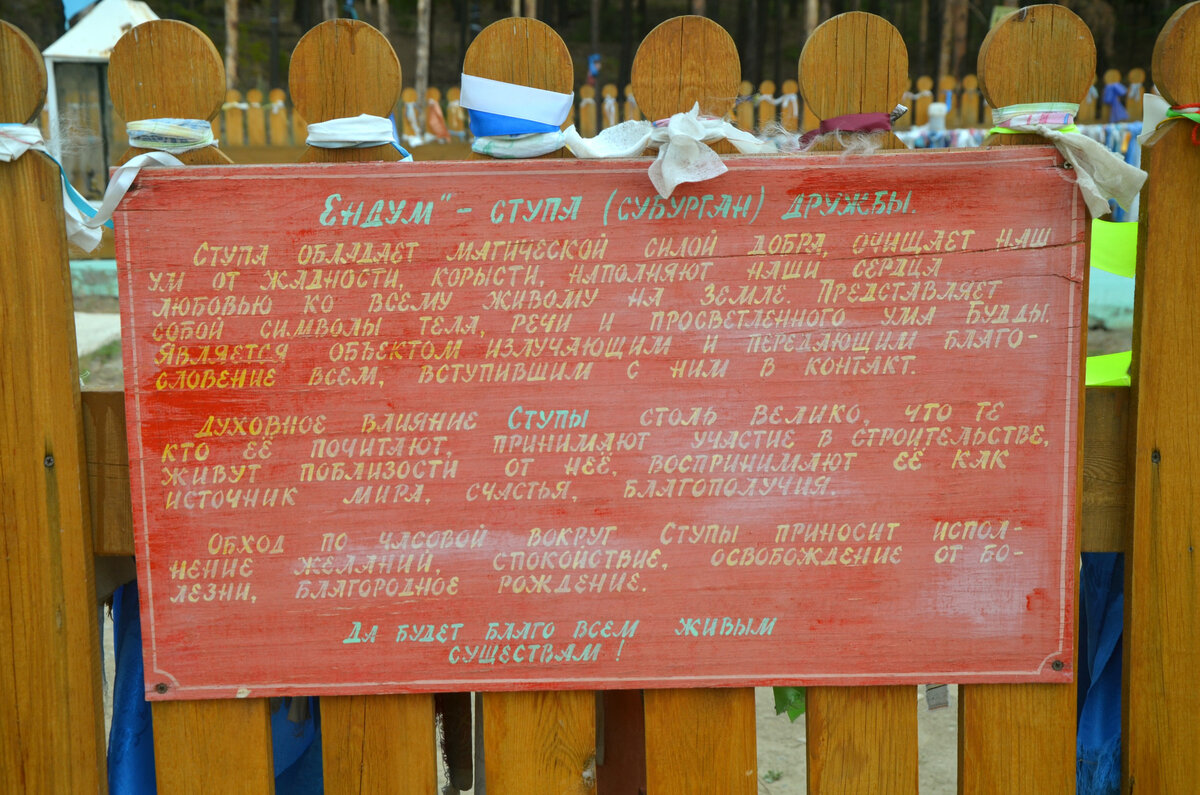 Ендум" – ступа (субурган) дружбы.
Ступа обладает магической силой добра, очищает наш
ум от жадности, корысти, наполняют наши сердца
любовью ко всему живому на Земле. Представляет
собой символы тела, речи и просветленного ума Будды.
Является объектом излучающим и передающим благо-
словение всем, вступившим с ним в контакт.
Духовное влияние Ступы столь велико, что те
кто её почитают, принимают участие в строительстве,
живут поблизости от неё, воспринимают её как
источник мира, счастья, благополучия.
Обход по часовой вокруг Ступы приносит испол-
нение желаний, спокойствие, освобождение от бо-
лезни, благородное рождение.
Да будет благо всем живым
существам!